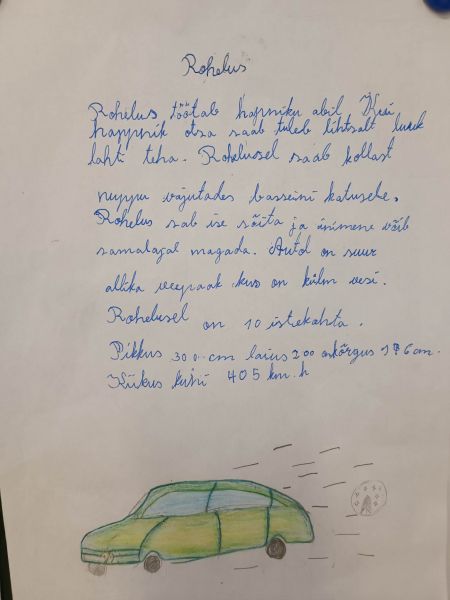 Rohelus
Rohelus töötab hapniku abil. Kui
happnik otsa saab tuleb lihtsalt luuk
lahti teha. Rohelusel saab kollast
nuppu vajutades basseini katusele.
Rohelus sab ise sõita ja inimene võib
samalajal magada. Autol on suur
allika veepaak kus on külm vesi.
Rohelusel on 10 istekohta.
Pikkus 300 cm laius 200 kõrgus 176 cm.
Kiikus kuni 405 km.h